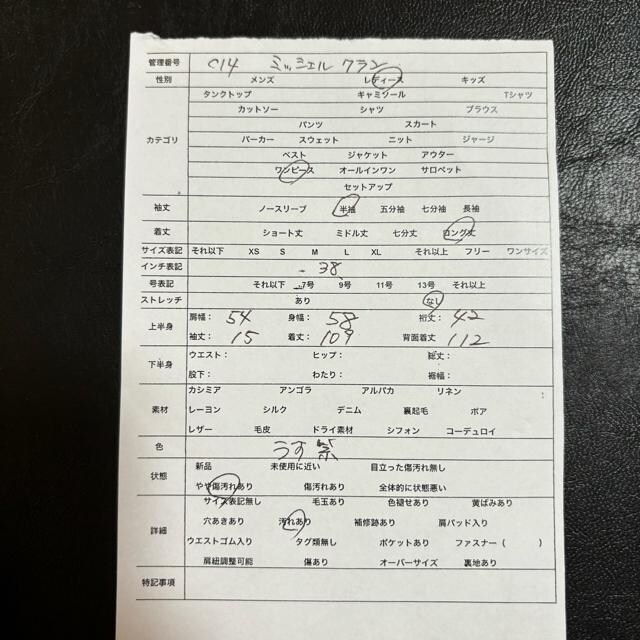 管理番号 C14 ミッシェル クラン
性別 メンズ レディース キッズ
タンクトップ キャミソール Tシャツ
カットソー シャツ ブラウス
パンツ スカート
カテゴリ パーカー スウェット ニット ジャージ
ベスト ジャケット アウター
ワンピース オールインワン サロペット
セットアップ
袖丈 ノースリーブ 半袖 五分袖 七分袖 長袖
着丈 ショート丈 ミドル丈 七分丈 ロング丈
サイズ表記 それ以下 XS S M L XL それ以上 フリー ワンサイズ
インチ表記 38
号表記 それ以下 7号 9号 11号 13号 それ以上
ストレッチ あり なし
上半身 肩幅: 54 身幅: 58 裄丈: 42
袖丈: 15 着丈: 109 背面着丈 112
下半身 ウエスト: ヒップ: 総丈:
股下: わたり: 裾幅:
カシミア アンゴラ アルパカ リネン
素材 レーヨン シルク デニム 裏起毛 ボア
レザー 毛皮 ドライ素材 シフォン コーデュロイ
色 うす紫
状態 新品 未使用に近い 目立った傷汚れ無し
やや傷汚れあり 傷汚れあり 全体的に状態悪い
サイズ表記無し 毛玉あり 色褪せあり 黄ばみあり
詳細 穴あきあり 汚れあり 補修跡あり 肩パッド入り
ウエストゴム入り タグ類無し ポケットあり ファスナー ( )
肩紐調整可能 傷あり オーバーサイズ 裏地あり
特記事項